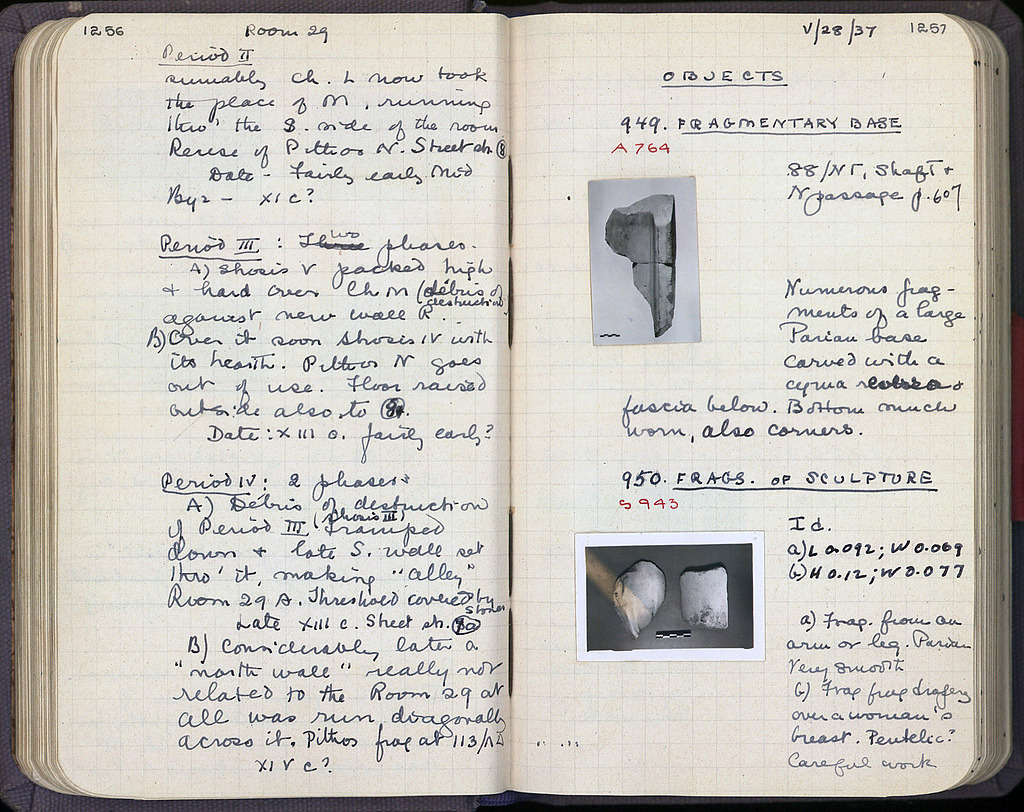 1256 Room 29
Period II
sumably Ch. L now took
the place of M, running
thro' the S. side of the room
Reuse of Pithos N. Street str. 8
Date - Fairly early Mid
Byz - XI c?
Period III: Two phases.
A) Strosis V packed high
+ hard over Ch M (débris of destruction)
against new wall R.
B) Over it soon Strosis IV with
its hearth. Pithos N goes
out of use. Floor raised
outside also, to
Date: XIII c. fairly early?
Period IV: 2 phases
A) Débris of destruction
of Period III (Strosis III) tramped
down + late S. wall set
thro' it, making "alley"
Room 29 A. Threshold covered by stones
Late XIII c. Street str. 
B) Considerably later a
"north wall" really not
related to the Room 29 at
all was run diagonally
across it. Pithos frag at 113/
XIV c?
V/28/37 1257
OBJECTS
949. FRAGMENTARY BASE
A 764
88/NΓ, Shaft +
N passage p. 607
Numerous frag-
ments of a large
Parian base
carved with a
cyma +
fascia below. Bottom much
worn, also corners.
950. FRAGS. OF SCULPTURE
S 943
Id.
a) L 0.092; W 0.069
b) H 0.12; W 0.077
a) Frag. from an
arm or leg. Parian
Very smooth
b) Frag from drapery
over a woman's
breast. Pentelic?
Careful work